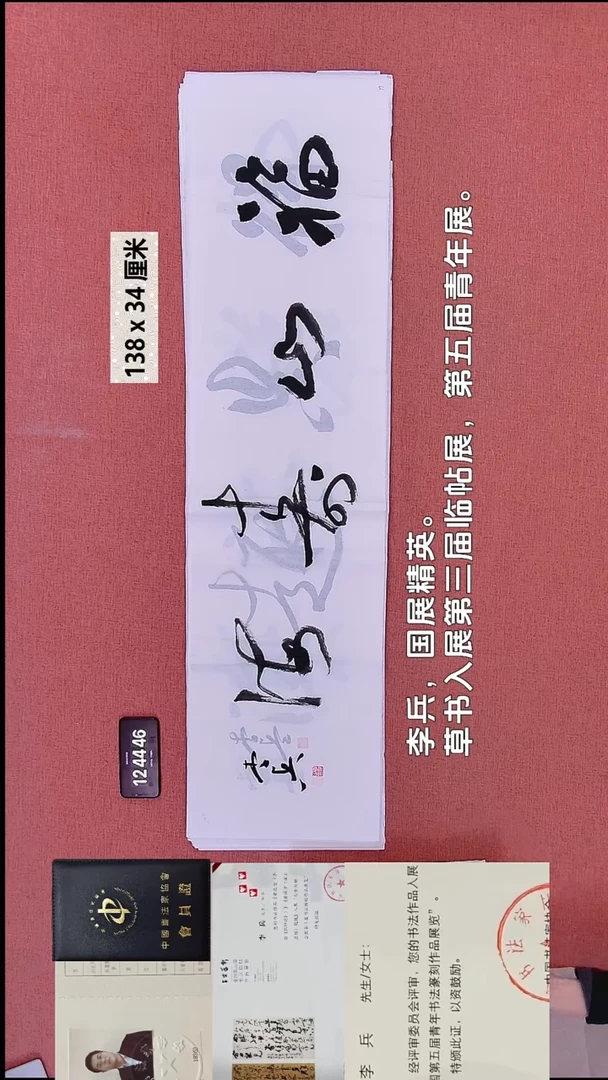 138 x 34 厘米
12 44 46
福山寿海
李兵
李兵，国展精英。
草书入展第三届临帖展，第五届青年展。
中國書法家協會
會員證
李 兵
李 兵 先生/女士：
经评审委员会评审，您的书法作品入展
国第五届青年书法篆刻作品展览”。
特颁此证，以资鼓励。